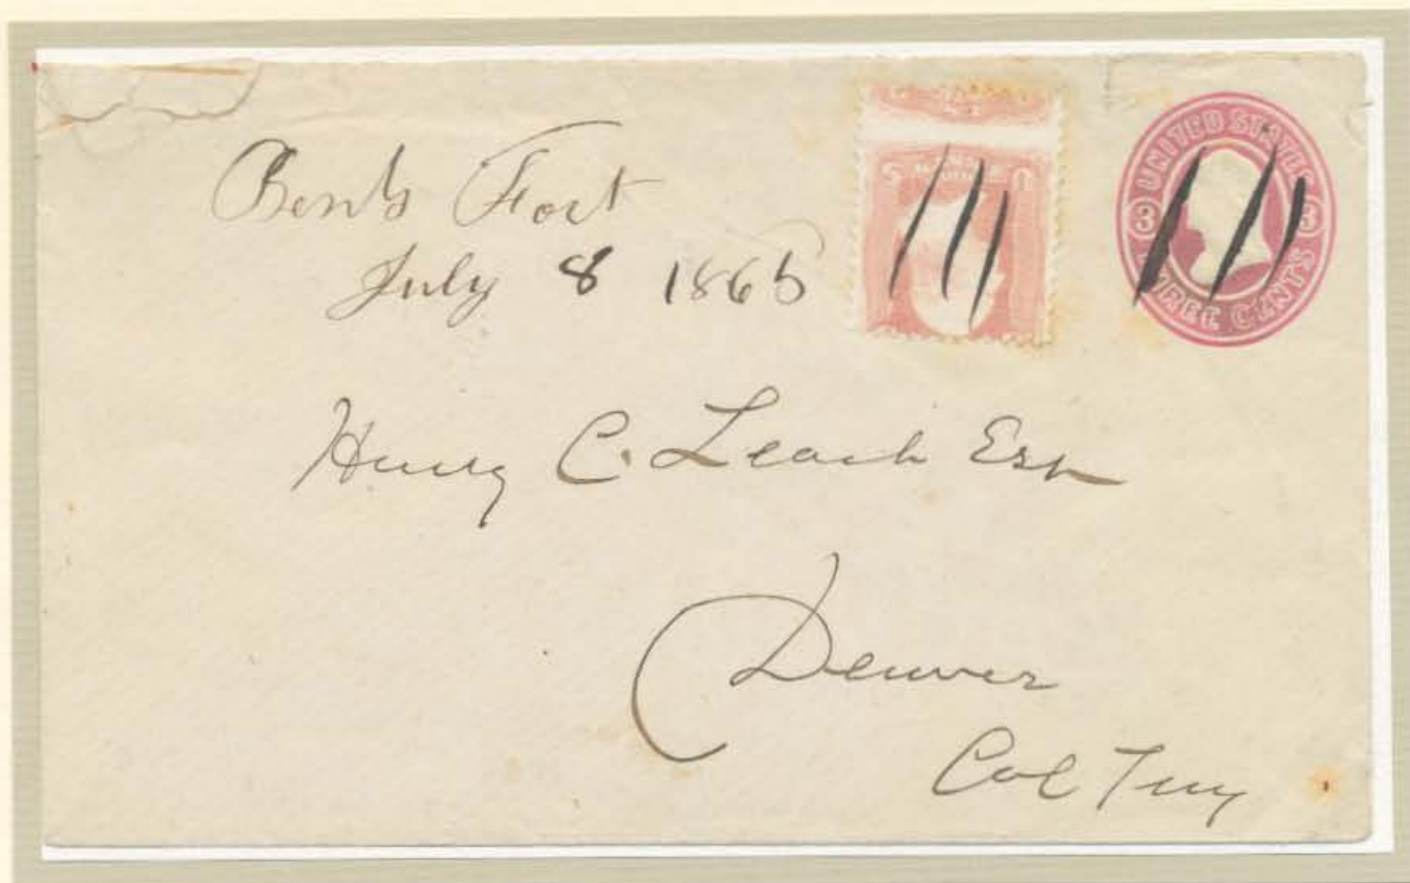 Bents Fort
July 8 1865
U S
3 UNITED STATES 3
THREE CENTS
Henry C. Leach Esq
Denver
Col Terry